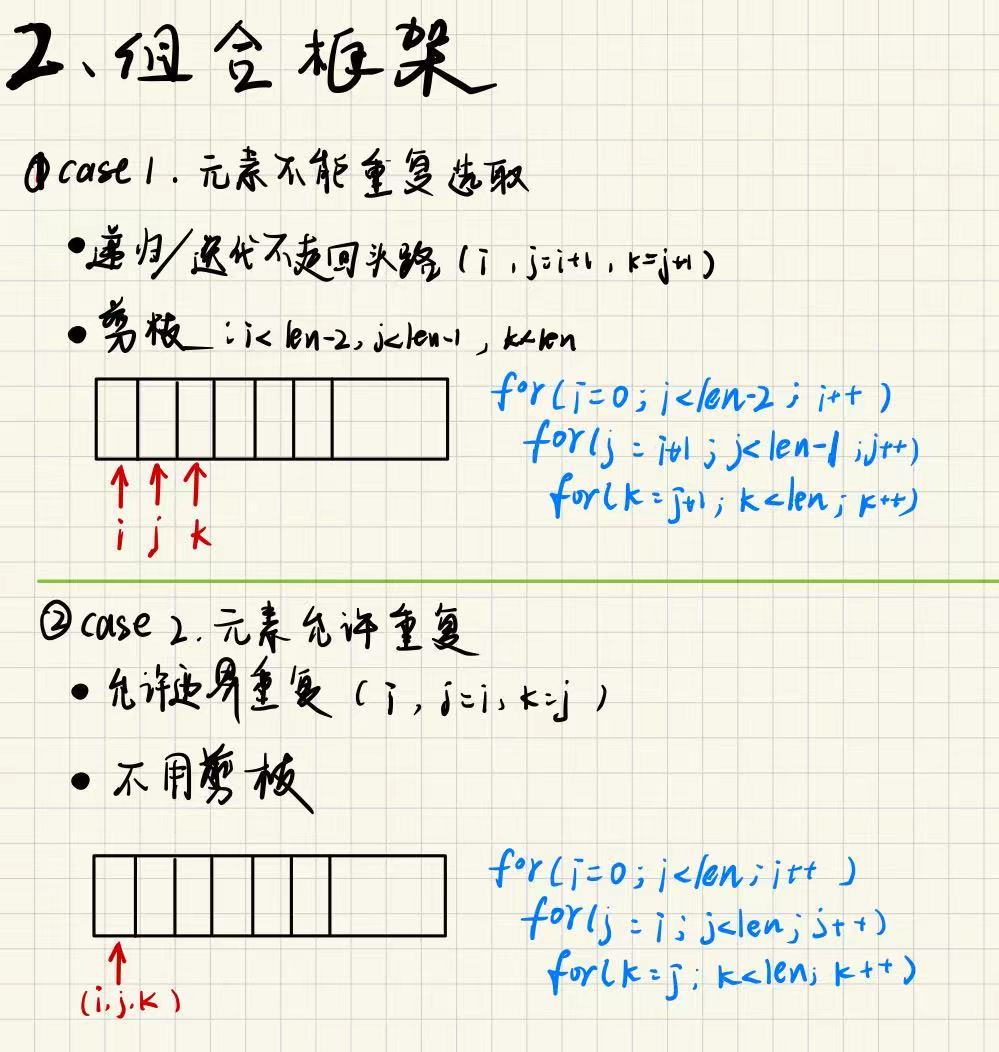 2、组合框架
① case 1. 元素不能重复选取
• 递归/迭代不走回头路 (i, j=i+1, k=j+1)
• 剪枝: i<len-2, j<len-1, k<len
for(i=0; i<len-2; i++)
for(j=i+1; j<len-1; j++)
for(k=j+1; k<len; k++)
i j k
② case 2. 元素允许重复
• 允许边界重复 (i, j=i, k=j)
• 不用剪枝
for(i=0; i<len; i++)
for(j=i; j<len; j++)
for(k=j; k<len; k++)
(i.j.k)